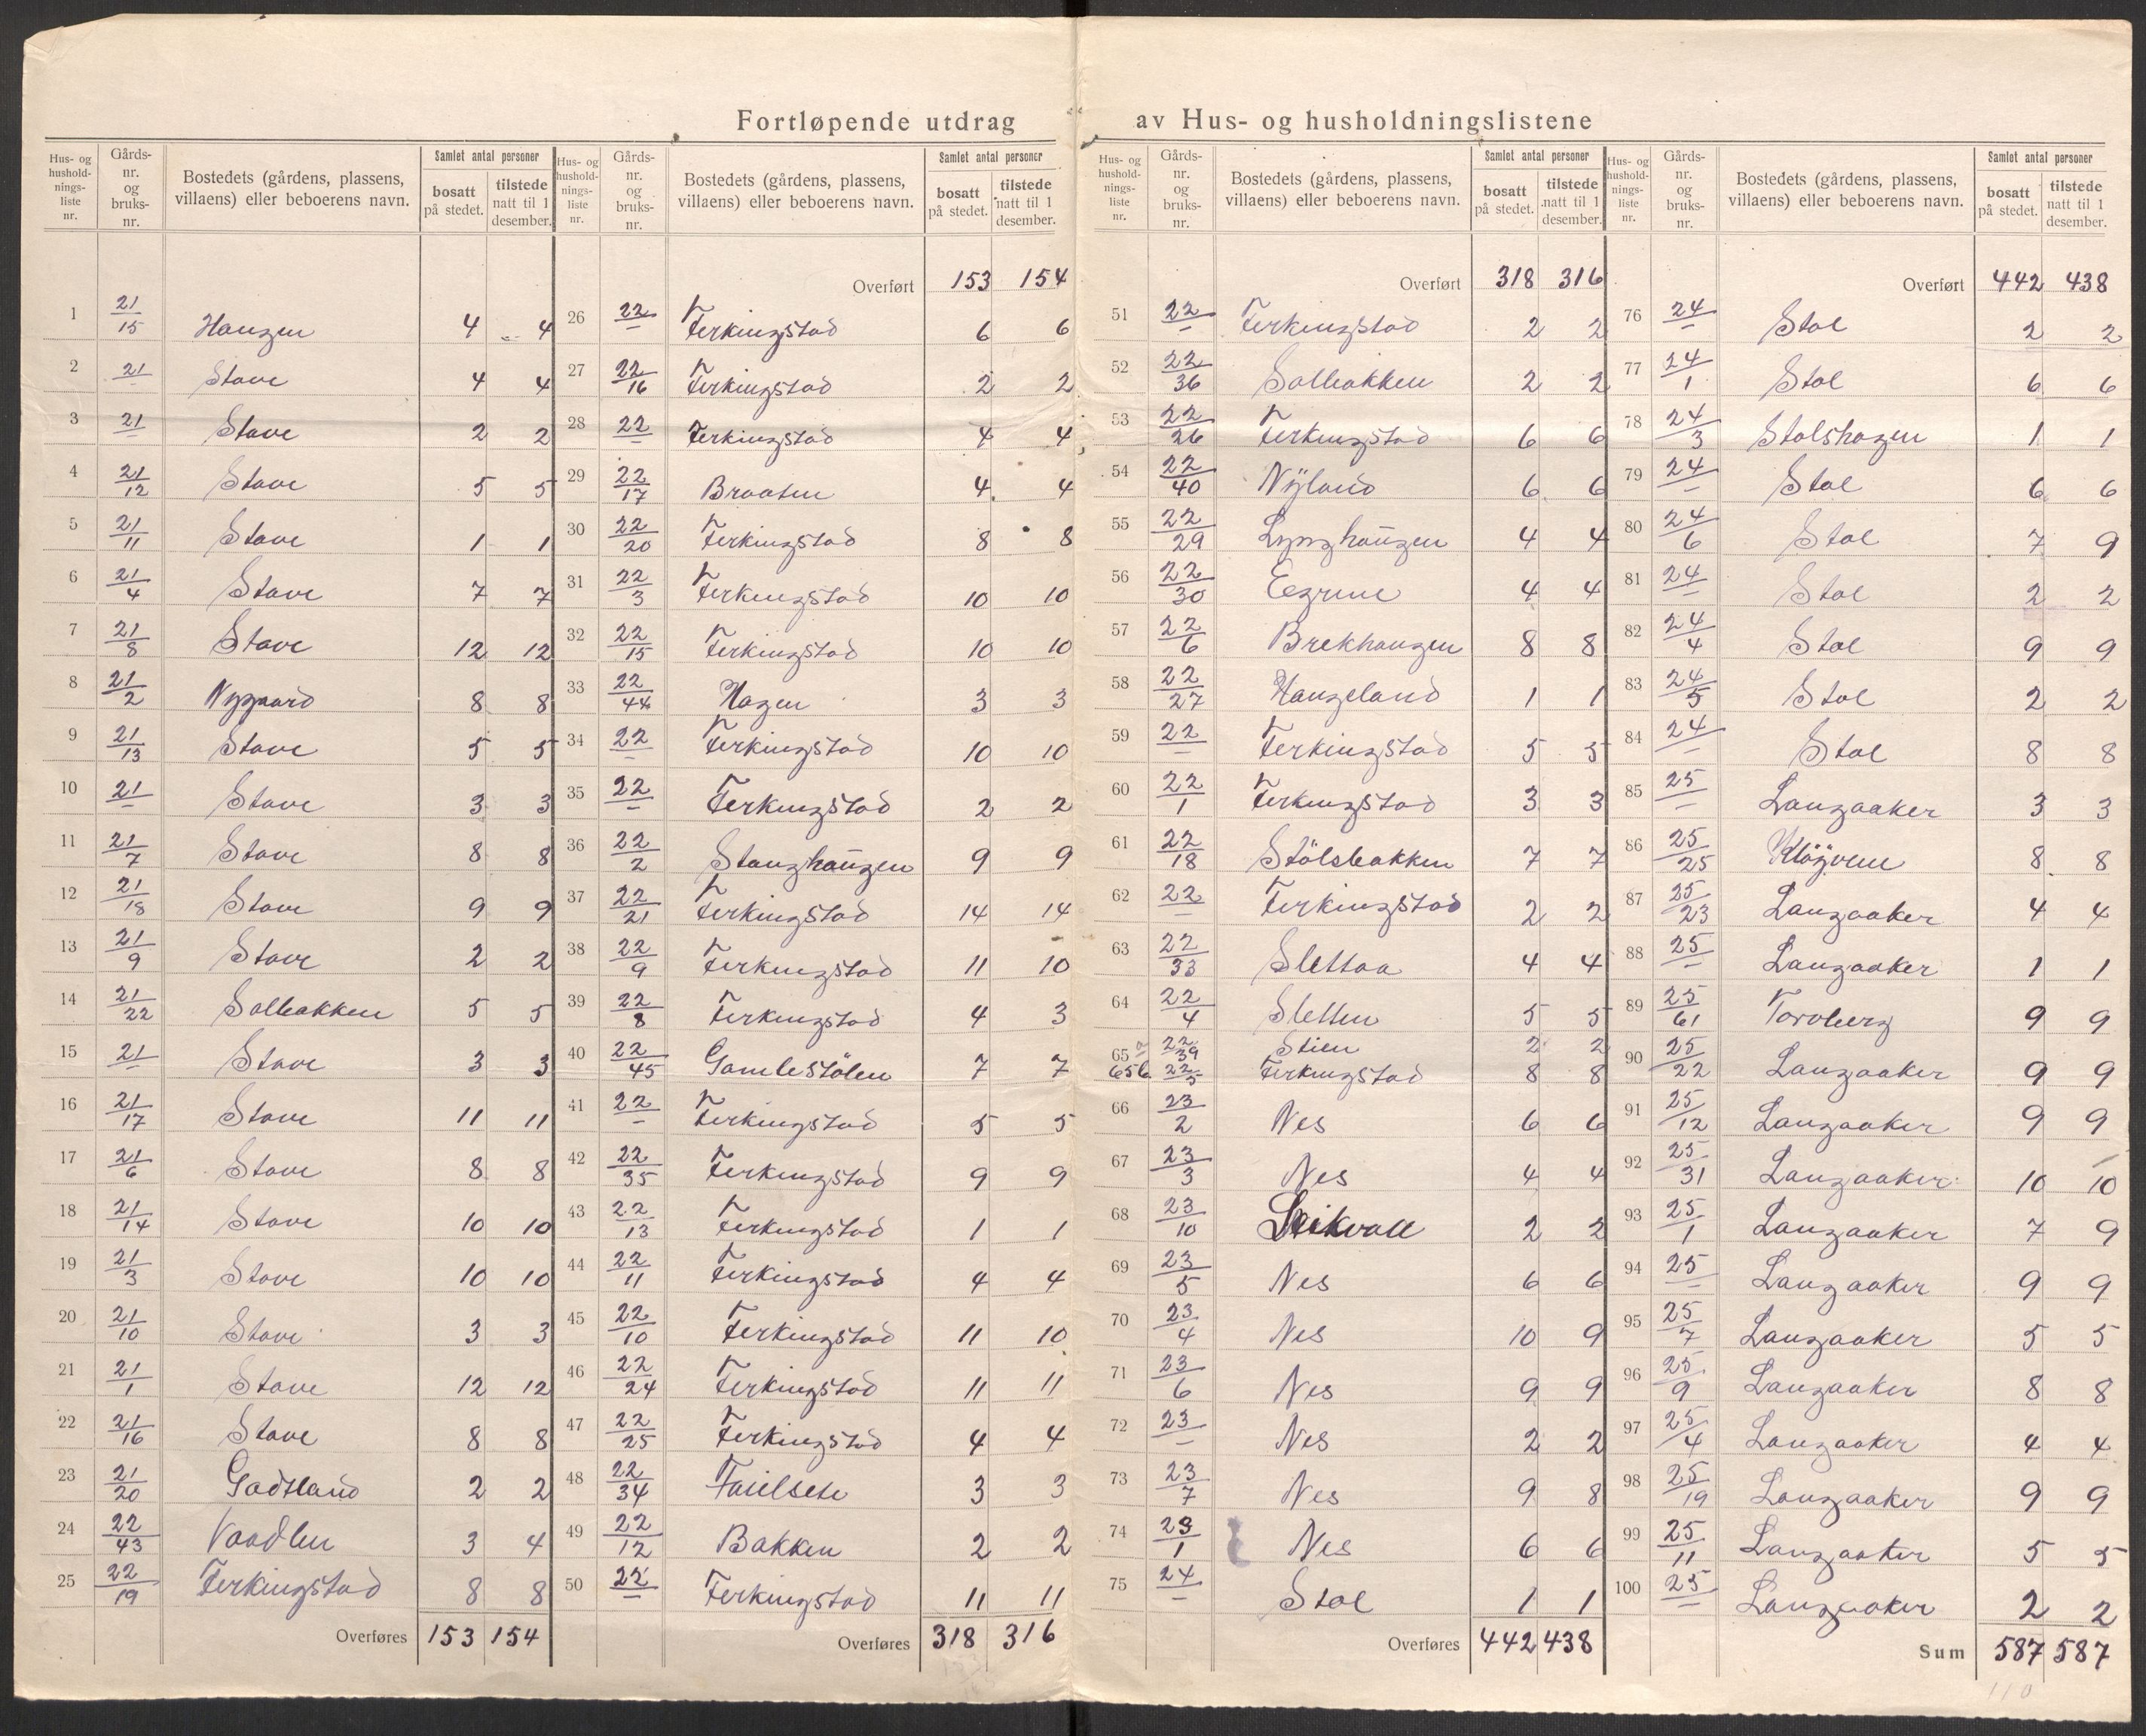 Fortløpende utdrag av Hus- og husholdningslistene
Hus- og husholdningsliste nr. | Gårdsnr. og bruksnr. | Bostedets (gårdens, plassens, villaens) eller beboerens navn. | Samlet antal personer bosatt på stedet. | tilstede natt til 1 desember.
1 21/15 Haugen 4 4
2 21/– Stave 4 4
3 21/– Stave 2 2
4 21/12 Stave 5 5
5 21/11 Stave 1 1
6 21/4 Stave 7 7
7 21/8 Stave 12 12
8 21/2 Nygaard 8 8
9 21/13 Stave 5 5
10 21/– Stave 3 3
11 21/7 Stave 8 8
12 21/18 Stave 9 9
13 21/9 Stave 2 2
14 21/22 Solbakken 5 5
15 21/– Stave 3 3
16 21/17 Stave 11 11
17 21/6 Stave 8 8
18 21/14 Stave 10 10
19 21/3 Stave 10 10
20 21/10 Stave 3 3
21 21/1 Stave 12 12
22 21/16 Stave 8 8
23 21/20 Godtland 2 2
24 22/43 Vaadlen 3 4
25 22/19 Ferkingstad 8 8
Overføres 153 154
Hus- og husholdningsliste nr. | Gårdsnr. og bruksnr. | Bostedets (gårdens, plassens, villaens) eller beboerens navn. | Samlet antal personer bosatt på stedet. | tilstede natt til 1 desember.
Overført 153 154
26 22/– Ferkingstad 6 6
27 22/16 Ferkingstad 2 2
28 22/– Ferkingstad 4 4
29 22/17 Braaten 4 4
30 22/20 Ferkingstad 8 8
31 22/3 Ferkingstad 10 10
32 22/15 Ferkingstad 10 10
33 22/44 Hagen 3 3
34 22/– Ferkingstad 10 10
35 22/– Ferkingstad 2 2
36 22/2 Stanghaugen 9 9
37 22/21 Ferkingstad 14 14
38 22/9 Ferkingstad 11 10
39 22/8 Ferkingstad 4 3
40 22/45 Gamlestölen 7 7
41 22/– Ferkingstad 5 5
42 22/35 Ferkingstad 9 9
43 22/13 Ferkingstad 1 1
44 22/11 Ferkingstad 4 4
45 22/10 Ferkingstad 11 10
46 22/24 Ferkingstad 11 11
47 22/25 Ferkingstad 4 4
48 22/34 3 3
49 22/12 Bakken 2 2
50 22/– Ferkingstad 11 11
Overføres 318 316
Hus- og husholdningsliste nr. | Gårdsnr. og bruksnr. | Bostedets (gårdens, plassens, villaens) eller beboerens navn. | Samlet antal personer bosatt på stedet. | tilstede natt til 1 desember.
Overført 318 316
51 22/– Ferkingstad 2 2
52 22/36 Solbakken 2 2
53 22/26 Ferkingstad 6 6
54 22/40 Nÿland 6 6
55 22/29 Lynghaugen 4 4
56 22/30 Eegrene 4 4
57 22/6 Brekhaugen 8 8
58 22/27 Haugeland 1 1
59 22/– Ferkingstad 5 5
60 22/1 Ferkingstad 3 3
61 22/18 Stölsbakken 7 7
62 22/– Ferkingstad 2 2
63 22/33 Slettaa 4 4
64 22/4 Sletten 5 5
65 a 22/39 Stien 2 2
65b 22/5 Ferkingstad 8 8
66 23/2 Nes 6 6
67 23/3 Nes 4 4
68 23/10 Leikvoll 2 2
69 23/5 Nes 6 6
70 23/4 Nes 10 9
71 23/6 Nes 9 9
72 23/– Nes 2 2
73 23/7 Nes 9 8
74 23/1 Nes 6 6
75 24/– Stol 1 1
Overføres 442 438
Hus- og husholdningsliste nr. | Gårdsnr. og bruksnr. | Bostedets (gårdens, plassens, villaens) eller beboerens navn. | Samlet antal personer bosatt på stedet. | tilstede natt til 1 desember.
Overført 442 438
76 24/– Stol 2 2
77 24/1 Stol 6 6
78 24/3 Stolshagen 1 1
79 24/– Stol 6 6
80 24/6 Stol 7 9
81 24/– Stol 2 2
82 24/4 Stol 9 9
83 24/5 Stol 2 2
84 24/– Stol 8 8
85 25/– Langaaker 3 3
86 25/25 8 8
87 25/23 Langaaker 4 4
88 25/– Langaaker 1 1
89 25/61 Torvberg 9 9
90 25/22 Langaaker 9 9
91 25/12 Langaaker 9 9
92 25/31 Langaaker 10 10
93 25/1 Langaaker 7 9
94 25/– Langaaker 9 9
95 25/7 Langaaker 5 5
96 25/9 Langaaker 8 8
97 25/4 Langaaker 4 4
98 25/19 Langaaker 9 9
99 25/11 Langaaker 5 5
100 25/– Langaaker 2 2
Sum 587 587
110